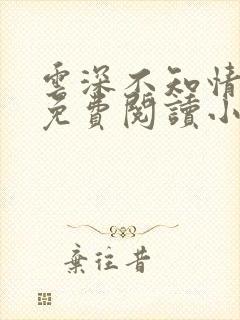 雲深不知情
免費閱讀小
棄往昔